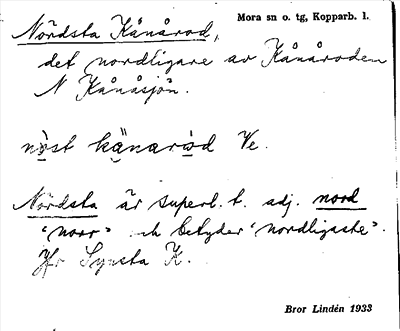 Nordsta Kånårod, Mora sn o. tg, Kopparb. l.
det nordligare av Kånåroden
N Kånåsjön.
Ve.
Nordsta är superl. t. adj. nord
"norr" och betyder "nordligaste".
Jfr Synsta K.
Bror Lindén 1933